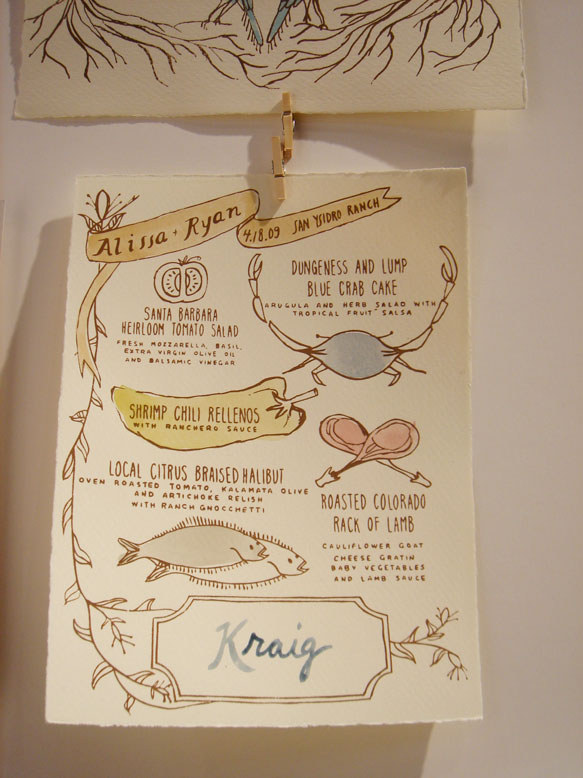 Alissa + Ryan
4.18.09 SAN YSIDRO RANCH
SANTA BARBARA
HEIRLOOM TOMATO SALAD
FRESH MOZZARELLA, BASIL,
EXTRA VIRGIN OLIVE OIL
AND BALSAMIC VINEGAR
DUNGENESS AND LUMP
BLUE CRAB CAKE
ARUGULA AND HERB SALAD WITH
TROPICAL FRUIT SALSA
SHRIMP CHILI RELLENOS
WITH RANCHERO SAUCE
LOCAL CITRUS BRAISED HALIBUT
OVEN ROASTED TOMATO, KALAMATA OLIVE
AND ARTICHOKE RELISH
WITH RANCH GNOCCHETTI
ROASTED COLORADO
RACK OF LAMB
CAULIFLOWER GOAT
CHEESE GRATIN
BABY VEGETABLES
AND LAMB SAUCE
Kraig